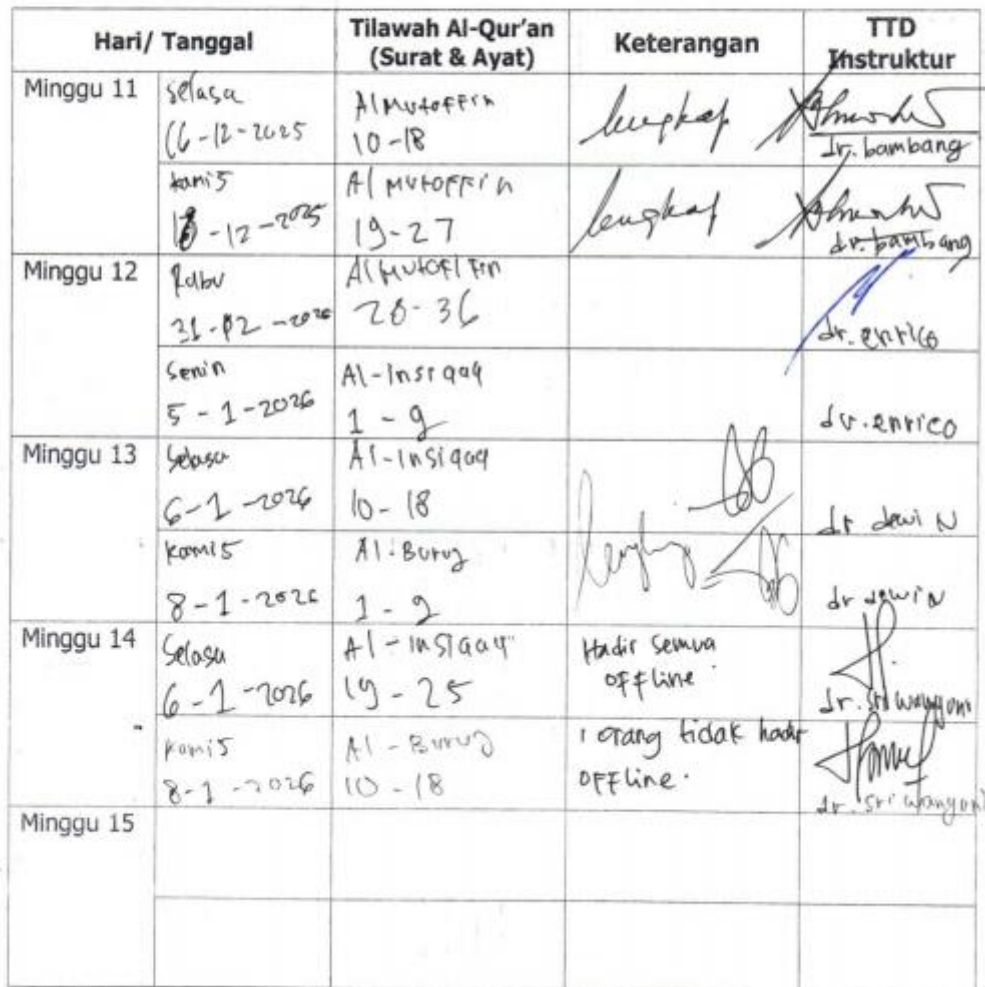 Hari/ Tanggal
Tilawah Al-Qur'an
(Surat & Ayat)
Keterangan
TTD
Instruktur
Minggu 11
Selasa
16-12-2025
Al Mutoffin
10-18
lengkap
dr. bambang
kamis
18-12-2025
Al Mutoffin
19-27
lengkap
dr. bambang
Minggu 12
Rabu
31-12-2026
Al Mutoffin
28-36
dr. enrico
Senin
5-1-2026
Al-Insiqaq
1-9
dr. enrico
Minggu 13
Selasa
6-1-2026
Al-insiqaq
10-18
lengkap
dr dewi N
kamis
8-1-2026
Al-Buruj
1-9
dr dewi N
Minggu 14
Selasa
6-1-2026
Al-insiqaq
19-25
Hadir semua
offline
dr. sri wahyuni
kamis
8-1-2026
Al-Buruj
10-18
1 orang tidak hadir
offline.
dr. sri wahyuni
Minggu 15